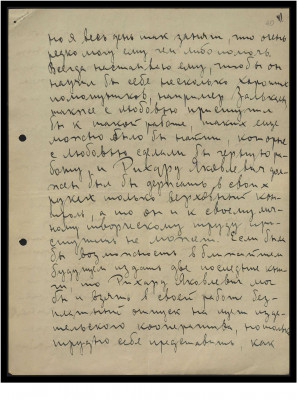 но я весь день так занят, что очень
редко могу ему чем либо помочь.
Всегда настаиваю ему, чтобы он
нашел бы себе несколько хороших
помощников, например Зальцман
также с любовью приступила
бы к такой работе, таких еще
можно было бы найти, которые
с любовью сделали бы черную ра-
боту, и Рихард Яковлевич дол-
жен был бы держать в своих
руках только верховный кон-
троль, а то он и к своему лич-
ному творческому труду при-
ступить не может. Если была
бы возможность в ближайшем
будущем издать две последние кни-
ги, то Рихард Яковлевич мог
бы и взять в своей работе без-
платный отпуск на
тельского кооператива, но так
трудно себе представить, как